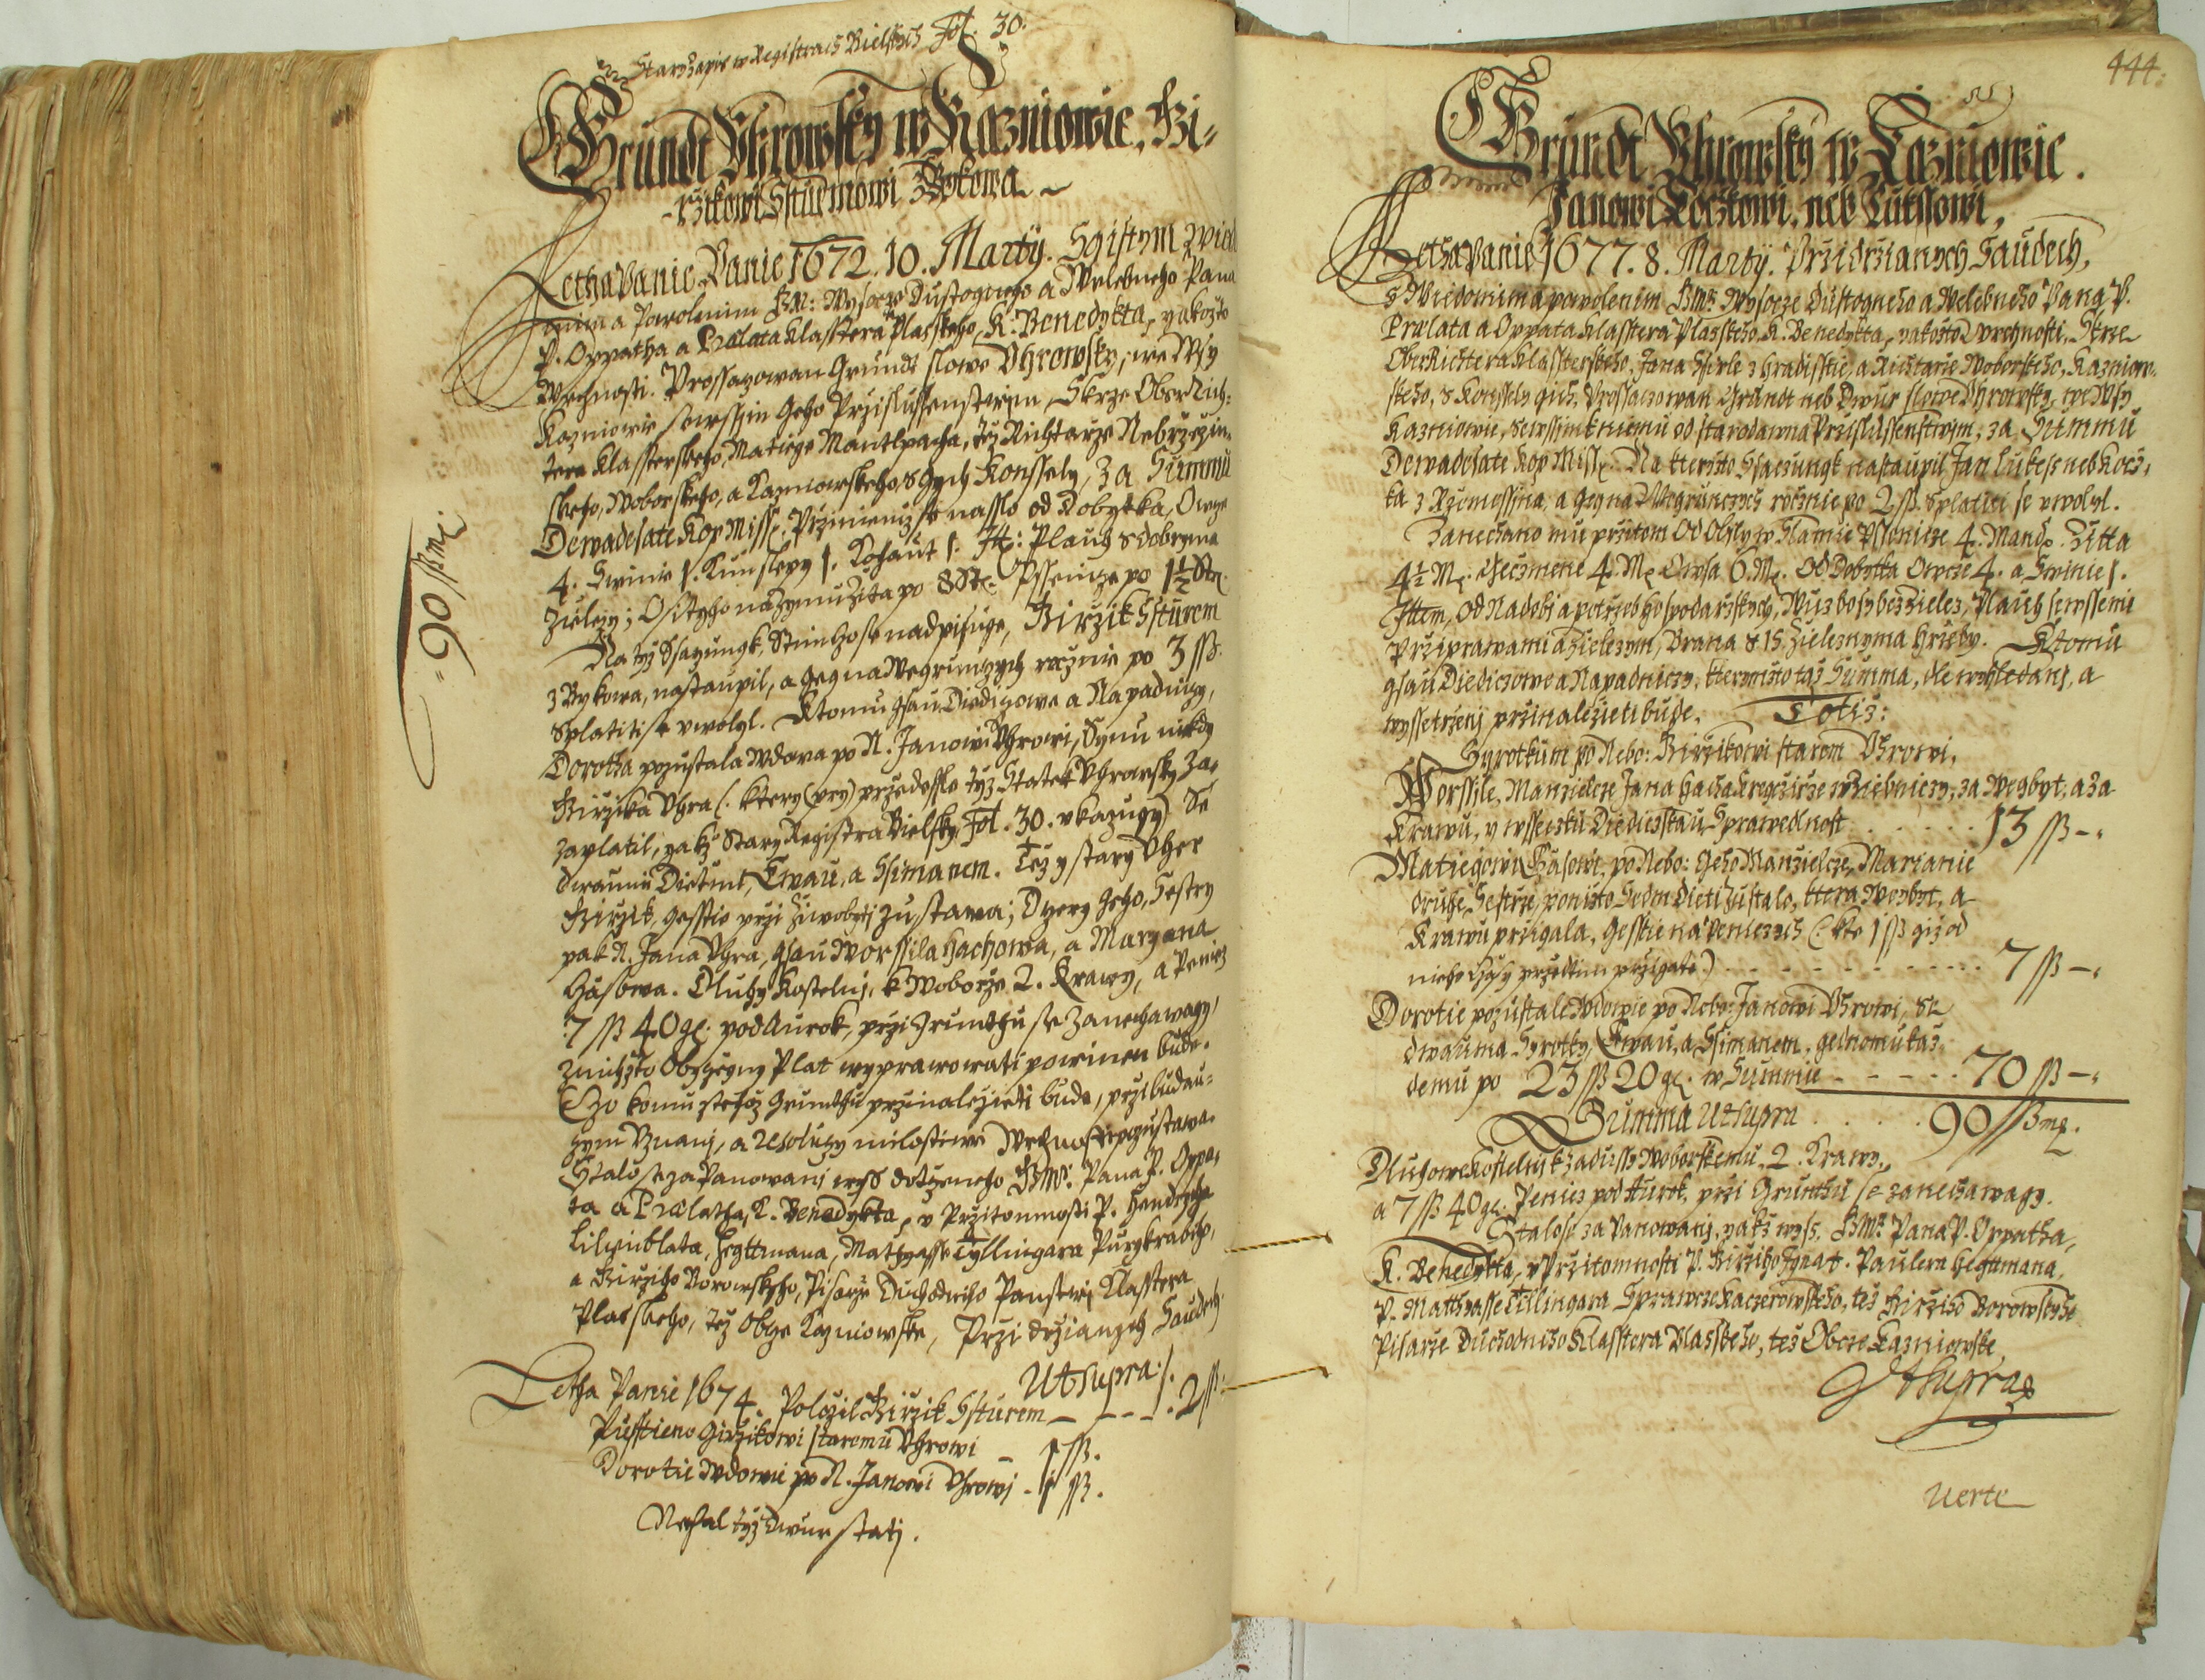 Starzapis w Registrach Bielskych Fol. 30.
Grundt Vhrowsky w Kazniowie, Girz-
-rzikowi Ssturmowi z Bykowa
Letha Panie Panie 1672. 10. Martij. S gistym wied
mim a Powolenim BM: Wysocze Dustogneho a Welebneho Pana
P. Oppatha a Prælata Klasstera Plasskeho, K. Benedykta, yakozto
Wrchnosti. Prossazowan Grundt slowe Vhrowsky, we Wsy
Kazniowie sewssim geho Przislussenstwim, Skrze Ober Rich:
tera Klassterskeho, Matiege Mantlpacha, tez Richtarze Nebrzezin:
skeho, Woborskeho, a Kazniowskeho, s gych Konssely, Za Summu
Dewadesate Kop Miss. Przinieniz se nasslo od Dobytka, Owcze
4. Swinie 1. Kun slepy 1. Kohaut 1. Itt: Pluch s dobryma
Zielezy; Ositycho na Zymu Zita po 8 Str. Pssenicze po 1½ Str.
Na tyz Ssaczungk, Steinho se nadpisuge, Girzik Ssturem
z Bykowa, nastaupil, a gegna Wegrunczych rocznie po 3 ß.
Splatiti se uwolyl. Ktomu gsau Diediczowe a Napadniczy,
Dorotha pozustala Wdowa po N. Janowi Vhrowi, Synu niekdy
Girzika Vhra (: ktery (pry) przedessle tyz Statek Vhrowsky Za-
zaplatil, yakz Stary Registra Bielsky Fol. 30. vkazugy) Se
dwaumi Dietmi, Ewau, a Ssimanem. Tez y stary Vher
Girzik, gesstie przi Ziwobyti zustawa; Dczery geho, Sestry
pak N. Jana Vhra, gsau Worssila Hachowa, a Maryana
Hasowa. Dluhy Kostelni, k Woborze 2. Krawy, a Peniez
7 ß 40 gl: pod Aurok, przi Grunthu se Zanechawagy,
z nichzto Obyczegny Plat wyprawowati powinen bude.
Czo komu stehoz Grunthu przinalezieti bude, przi budau-
czym Vznani, a resoluczy milostiwe Wrchnosti pozustawa.
Stalo se za Panowani wyss dotczeneho BM: Pana P. Oppa-
ta a Prælatha, K. Benedykta, v Przitomnosti P. Hendrycha
Lilienblata, Hegttmana, Matyasse Tyllingara Purgkrabiho,
a Girziho Borowskyho, Pisarze Duchodniho Panstwi Klasstera
Plasskeho, tez Obcze Kazniowske, Przi drzianych Saudech.
Ut supra /.
Letha Panie 1674. Polozil Girzik Ssturem - - - - . 2 ß.
Pusstieno Girzikowi staremu Vhrowi - 1 ß.
Dorotie Wdowie po N. Janowi Vhrowi - 1 ß.
Nechal tyz Dwur stati.
90 ß mi:
444.
Grundt Vhrowsky w Kazniowie.
Janowi Koczkowi, neb Lukssowi,
Letha Panie 1677. 8. Martij. Przi drzianych Saudech,
s Wiedomim a powolenim BM: Wysocze Dustogneho a Welebneho Pana P.
Prælata a Oppata Klasstera Plasskeho, K. Benedykta, yakozto Vrchnosti, Skrze
Ober Richtera Klassterskeho, Jana Hirle z Hradisstie, a Richtarze Woborskeho, Kazniow-
skeho, s Konssely gich, Prossaczowan Grundt neb Dwur slowe Vhrowsky, we Wsy
Kazniowie, sewssim kniemu od starodawna Przislussenstwim, za Summu
Dewadesate Kop Miss. Na kterizto Ssaczungk nastaupil Jan Lukess neb Kocz-
ka z Rzemessina, a gegna Wegrunczych rocznie po 2 ß. splatiti se uwolyl.
Zanechano mu przitom Od Obily w Slamie Pssenicze 4. Mand. Zitta
4½ M: Geczmene 4. M: Owsa 6. M: Od Dobytka Owcze 4. a Swinie 1.
Ittem, Od Nadobi a potrzeb hospodarzskych, Wuz bosy bez Zielez, Pluch sewssemi
Przyprawami a Zielezym, Brana s 15. Zieleznyma hrzeby. Ktomu
gsau Diediczowe a Napadniczy, kterymzto taz Summa, dle wyhledani, a
wyssetrzeni przinalezieti bude, Totiz:
Syrotkum po Nebo: Girzikowi starem Vhrowi,
Worssile, Manzielcze Jana Hacha Kregczirze w Niebniczy, za Wegbyt, a za
Krawu, y wssecku Diediczskau Sprawedlnost . . . . . 13 ß -.
Matiegowi Hasowi, po Nebo: geho Manzielcze, Marianie
druhe Sestrze, ponizto Sedm Dieti Zustalo, ktera Wegbyt, a
Krawu prziyala, gesstie na Peniezych (: kto 1 ß giz od
nieho Hasy przedtim prziyate) - - - - - - - - - 7 ß -.
Dorotie pozustale Wdowie po Nebo: Janowi Vhrowi, se
dwauma Syrotky, Ewau, a Ssimanem, gednomu kaz-
demu po 23 ß 20 gl. w Summie - - - - - 70 ß -.
Summa Ut supra . . . . 90 ß mi.
Dluhowe Kostelni k zadussy Woborskemu, 2. Krawy,
a 7 ß 40 gl. Peniez pod Aurok, przi Grunthu se zanechawagy.
Stalo se za Panowani, yakz wyss. BM: Pana P. Oppatha,
K. Benedykta, v Przitomnosti P. Girziho Ignat. Paulera Hegttmana,
P. Matthyasse Tillingara Sprawcze Kaczerowskeho, tez Girziho Borowskyho
Pisarze Duchodniho Klasstera Plasskeho, tez Obcze Kazniowske,
Ut supra
Verte